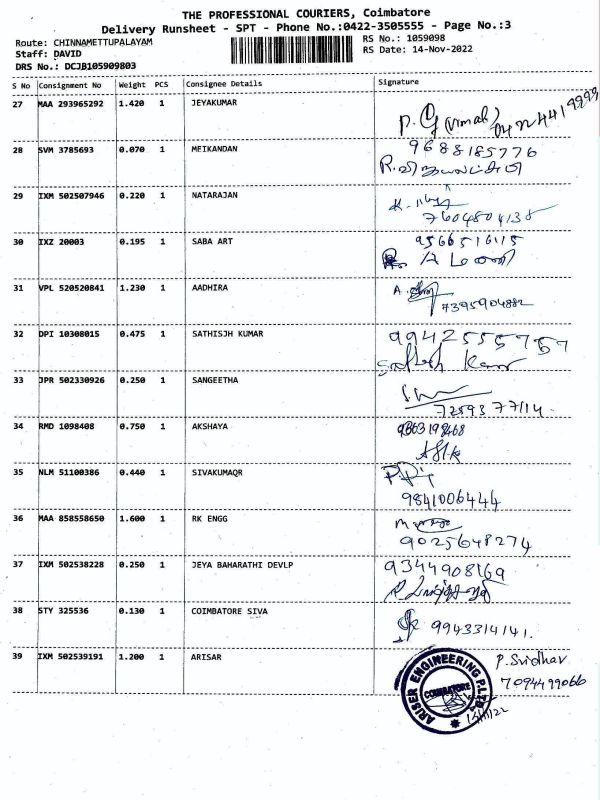 THE PROFESSIONAL COURIERS, Coimbatore
Delivery Runsheet - SPT - Phone No.:0422-3505555 - Page No.:3
Route: CHINNAMETTUPALAYAM RS No.: 1059098
Staff: DAVID RS Date: 14-Nov-2022
DRS No.: DCJB105909803
S No Consignment No Weight PCS Consignee Details Signature
27 MAA 293965292 1.420 1 JEYAKUMAR
28 SVM 3785693 0.070 1 MEIKANDAN 9688185776
29 IXM 502507946 0.220 1 NATARAJAN
7604804138
30 IXZ 20003 0.195 1 SABA ART 9566516115
31 VPL 520520841 1.230 1 AADHIRA
7395904882
32 DPI 10308015 0.475 1 SATHISJH KUMAR 9942555757
33 JPR 502330926 0.250 1 SANGEETHA
7259377114
34 RMD 1098408 0.750 1 AKSHAYA
35 NLM 51100386 0.440 1 SIVAKUMAQR
9841006444
36 MAA 858558650 1.600 1 RK ENGG
9025648274
37 IXM 502538228 0.250 1 JEYA BAHARATHI DEVLP 9344908169
38 STY 325536 0.130 1 COIMBATORE SIVA 9943314141.
39 IXM 502539191 1.200 1 ARISAR P. Sridhar
7094499066
ARISER ENGINEERING P.LTD
COIMBATORE